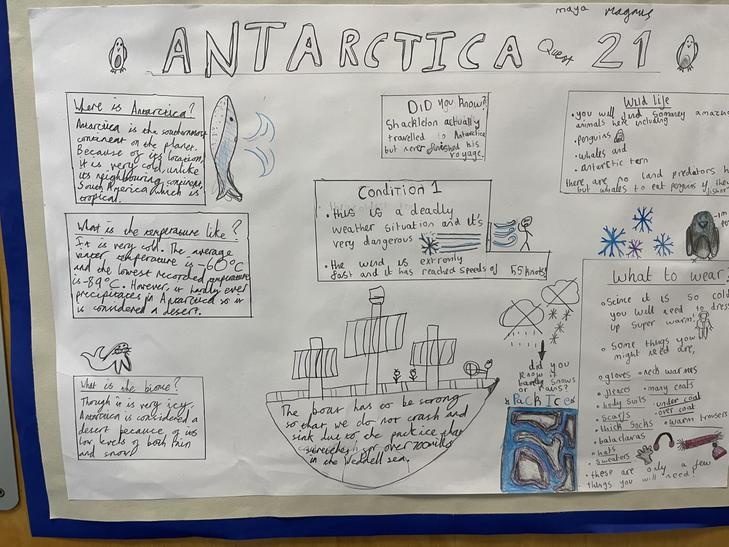 maya Magnus
ANTARCTICA Quest 21
Where is Antarctica?
Antarctica is the southernmost
continent on the planet.
Because of its location,
It is very cold, unlike
its neighbouring continent,
South America which is
tropical.
What is the temperature like?
It is very cold. The average
winter temperature is -60°C
and the lowest recorded temperature
is -89°C. However, it hardly ever
precipitates in Antarctica so it
is considered a desert.
What is the biome?
Though it is very icy,
Antarctica is considered a
desert because of its
low levels of both rain
and snow
DID you know?
Shackleton actually
travelled to Antarctica
but never finished his
voyage.
Condition 1
• this is a deadly
weather situation and it's
very dangerous
• the wind is extremly
fast and it has reached speeds of 55 knots
The boat has to be strong
so that we do not crash and
sink due to the packice that
for over 700 miles
in the Weddell sea.
did you
know it
barely snows
or rains?
Pack Ice
Wild life
• you will find so many amazing
animals here including
• penguins
• whales and
• antarctic tern
there are no land predators
but whales to eat penguins if they
What to wear
• Scince it is so cold
you will need to dress
up super warm!
• Some things you
might need are,
• gloves • neck warmers
• fleaces • many coats
• body suits • under coat
• scarfs • over coat
• thick socks • warm trousers
• balaclavas
• hats
• sweaters
• these are only a few
things you will need!